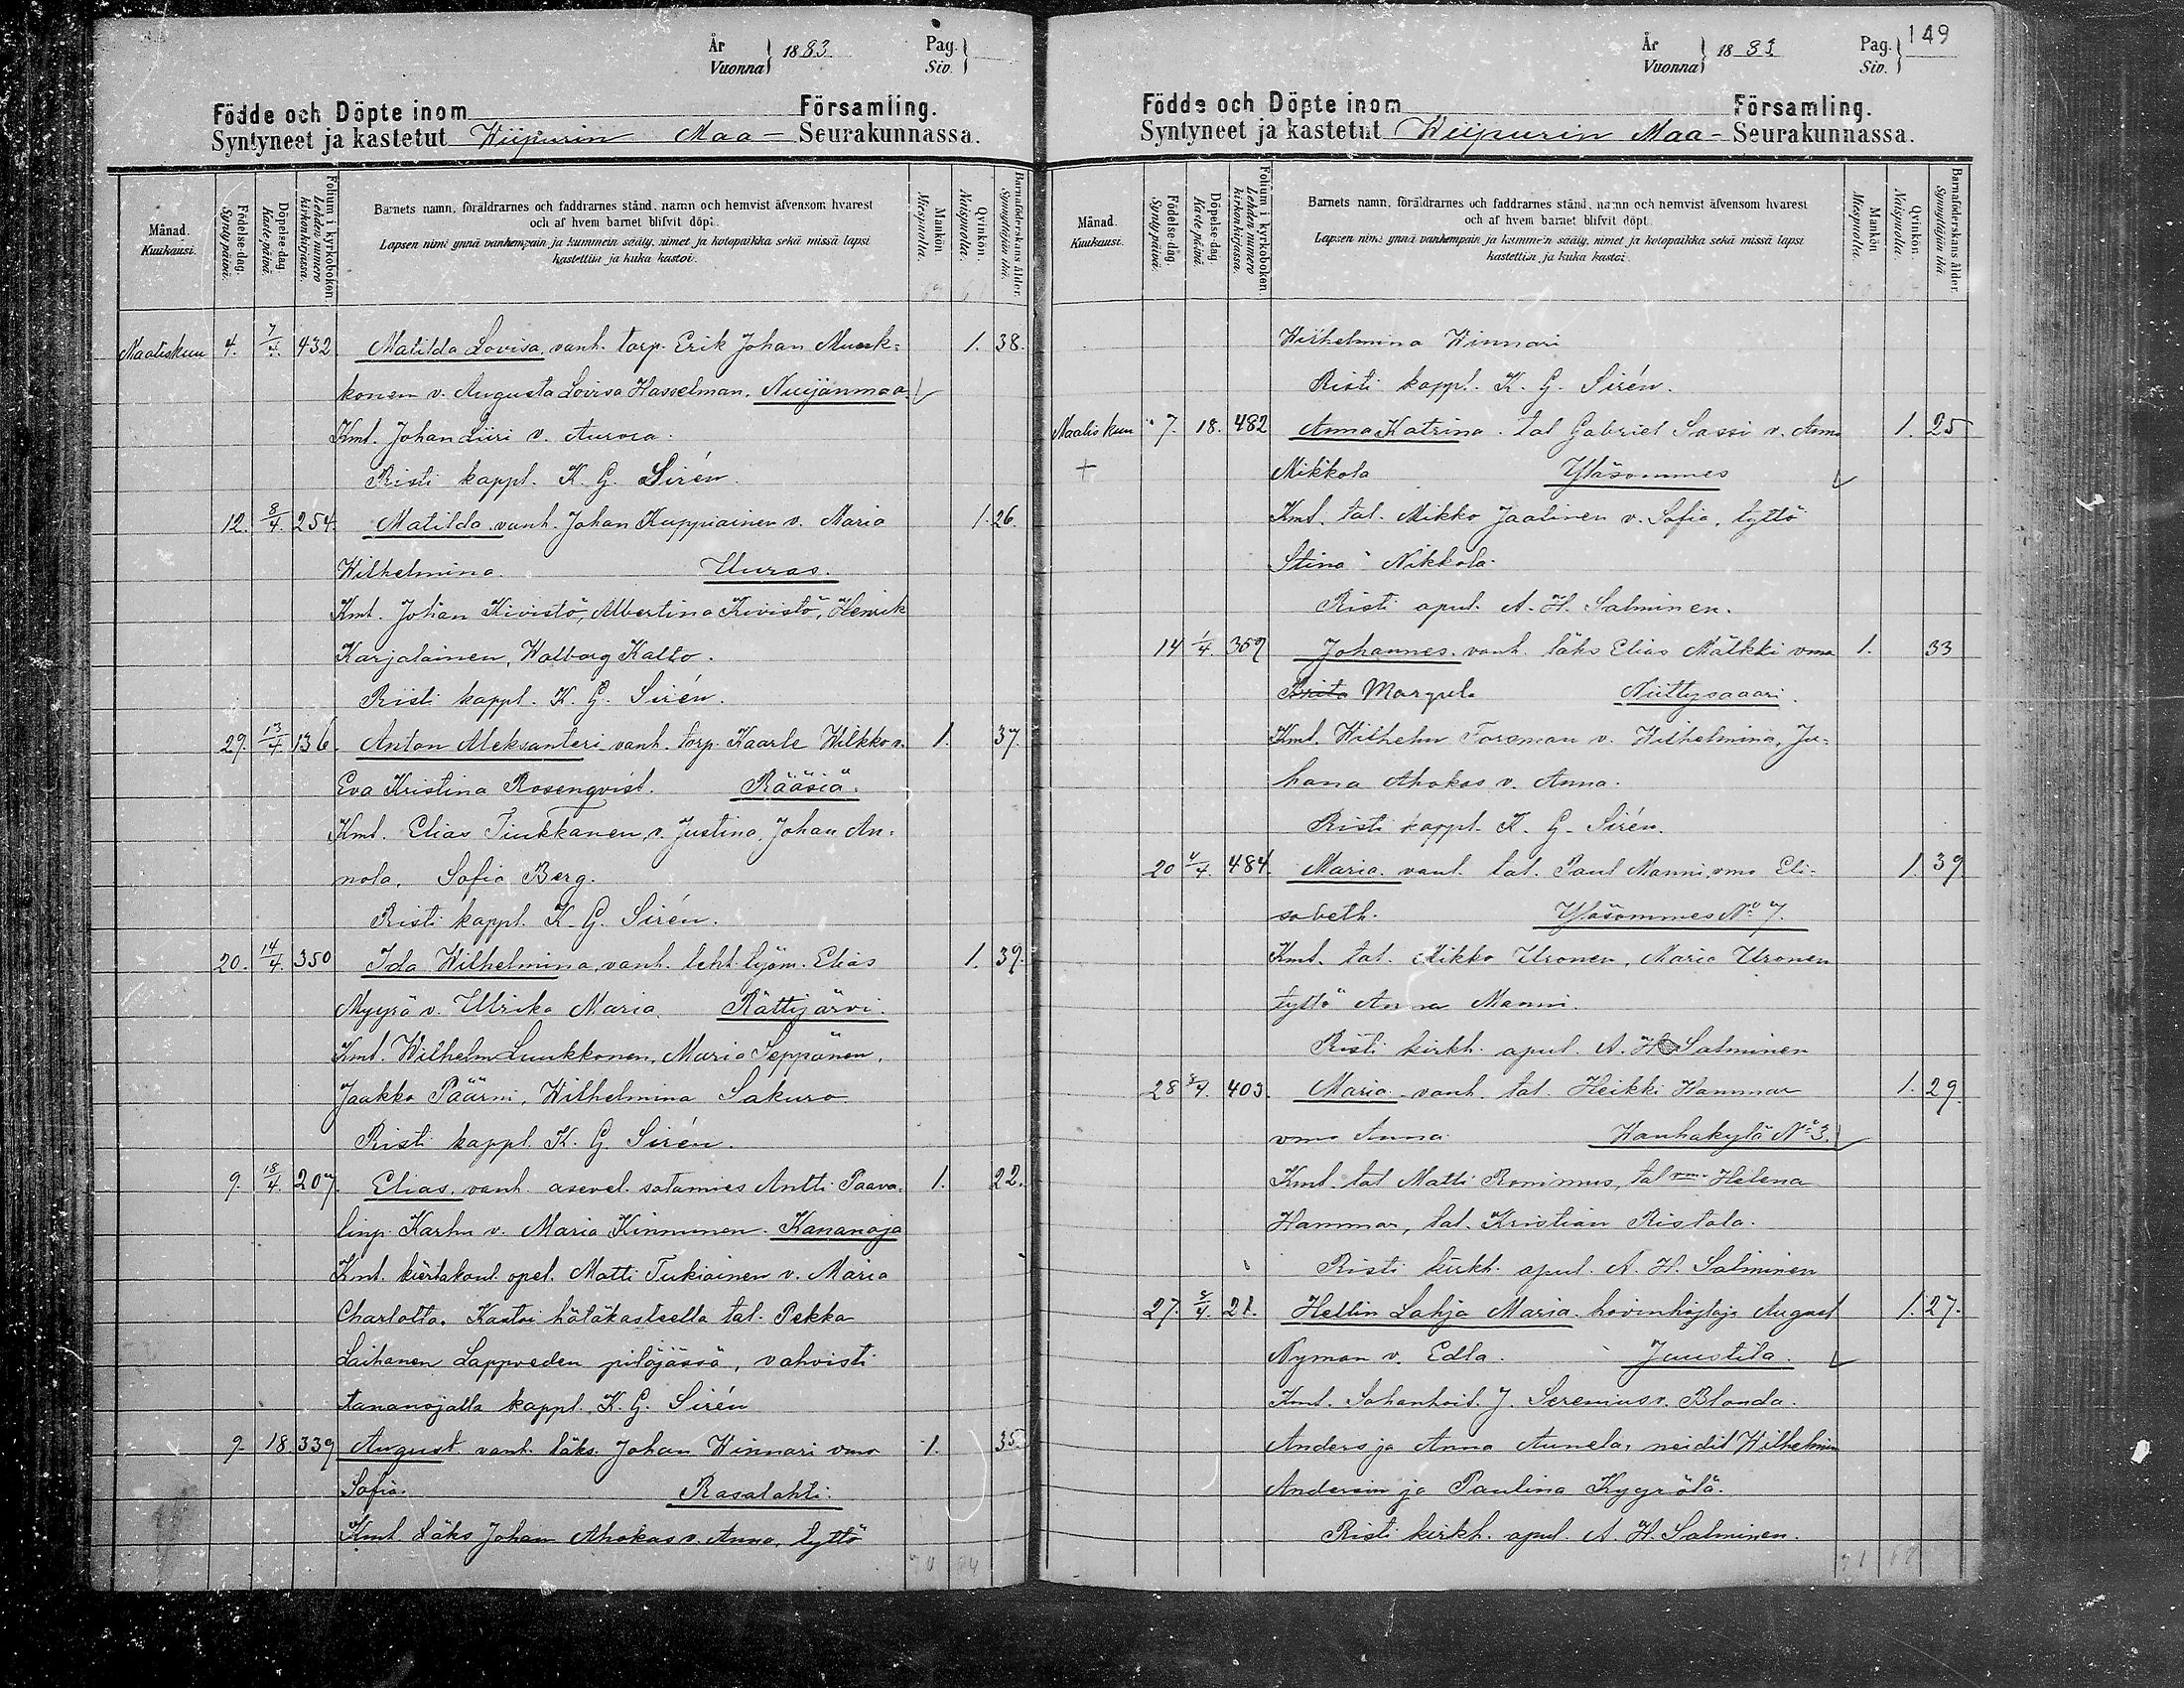 År
Vuonna } 1883. Pag.
Siv. }
Födde och Döpte inom Församling.
Syntyneet ja kastetut Wiipurin Maa- Seurakunnassa.
Månad.
Kuukausi.
Födelse-dag.
Synty päivä.
Döpelse-dag.
Kaste-päivä.
Folium i kyrkoboken.
Lehden numero kirkonkirjassa.
Barnets namn, föräldrarnes och faddrarnes stånd, namn och hemvist äfvensom hvarest
och af hvem barnet blifvit döpt.
Lapsen nimi ynnä vanhempain ja kummein sääty, nimet ja kotopaikka sekä missä lapsi
kastettiin ja kuka kastoi.
Mankön.
Miespuolia.
Qvinkön.
Naispuolia.
Barnaföderskans ålder.
Synnyttäjän ikä.
Maaliskuu 4. 7/4. 432 Matilda Lovisa, vanh. torp. Erik Johan Munk= 1. 38.
konen v. Augusta Lovisa Hasselman. Nuijanmaa
Kmt. Johan Liiri v. Aurora.
Risti kappl. K. G. Sirén.
12. 8/4. 254 Matilda vanh. Johan Kuppiainen v. Maria 1. 26.
Wilhelmina. Uuras.
Kmt. Johan Kivistö, Albertina Kivistö, Henrik
Karjalainen, Walborg Kalto.
Risti kappl. K. G. Sirén.
29. 13/4. 136. Anton Aleksanteri vanh. torp. Kaarle Wilkko v. 1. 37.
Eva Kristina Rosenqvist. Rääsiä.
Kmt. Elias Tiukkanen v. Justina, Johan An=
nola, Sofia Berg.
Risti kappl. K. G. Sirén.
20. 14/4. 350 Ida Wilhelmina, vanh. leht. työm. Elias 1. 39.
Myyrä v. Ulrika Maria. Rättijärvi.
Kmt. Wilhelm Luukkonen, Maria Seppänen,
Jaakko Päärni, Wilhelmina Sakura
Risti kappl. K. G. Sirén.
9. 18/4. 207. Elias, vanh. asevel. sotamies Antti Paava= 1. 22.
linp. Karhu v. Maria Kinnunen. Kananoja
Kmt. kiertokoul. opet. Matti Tukiainen v. Maria
Charlotta. Kastoi hätäkasteella tal. Pekka
Laihanen Lappveden pitäjässä, vahvisti
Kananojalla kappl. K. G. Sirén
9. 18 339 August vanh. läks. Johan Winnari vmo 1. 35.
Sofia. Rasalahti.
Kmt. Läks Johan Ahokas v. Anna, tyttö
År
Vuonna } 1883. Pag.
Siv. } 149
Födde och Döpte inom Församling.
Syntyneet ja kastetut Wiipurin Maa- Seurakunnassa.
Månad.
Kuukausi.
Födelse-dag.
Synty päivä.
Döpelse-dag.
Kaste-päivä.
Folium i kyrkoboken.
Lehden numero kirkonkirjassa.
Barnets namn, föräldrarnes och faddrarnes stånd, namn och hemvist äfvensom hvarest
och af hvem barnet blifvit döpt.
Lapsen nimi ynnä vanhempain ja kummein sääty, nimet ja kotopaikka sekä missä lapsi
kastettiin ja kuka kastoi.
Mankön.
Miespuolia.
Qvinkön.
Naispuolia.
Barnaföderskans ålder.
Synnyttäjän ikä.
Wilhelmina Winnari
Risti kappl. K. G. Sirén.
Maaliskuu 7. 18. 482 Anna Katrina. tal Gabriel Sassi v. Anna 1. 25
+ Mikkola Yläsommes
Kmt. tal. Mikko Jaatinen v. Sofia, tyttö
Stina Nikkola.
Risti apul. A. H. Salminen.
14 1/4. 359 Johannes. vanh. läks Elias Mälkki vmo 1. 33
Brita Margret. Niittysaaari.
Kmt. Wilhelm Forsman v. Wilhelmina, Ju=
hana Ahokas v. Anna.
Risti kappl. K. G. Sirén.
20 4/4. 484. Maria. vanh. tal. Paul Manni, vmo Eli- 1. 39.
sabeth. Yläsommes No 7.
Kmt. tal. Mikko Uronen, Maria Uronen
tyttö Anna Manni.
Risti kirkh. apul. A. H. Salminen
28 8/4. 403. Maria. vanh. tal. Heikki Hammar 1. 29.
vmo Anna. Wanhakylä No 3.
Kmt. tal Matti Ronimus, tal vmo Helena
Hammar, tal. Kristian Ristola.
Risti kirkh. apul. A. H. Salminen
27. 8/4. 21. Hellin Lahja Maria. hovinhoitaja August 1. 27.
Nyman v. Edla. Juustila.
Kmt. Sahanhoit. J. Serenius v. Blonda.
Anders ja Anna Aunela, neidit Wilhelmina
Andersin ja Paulina Kyyrölä.
Risti kirkh. apul. A. H. Salminen.